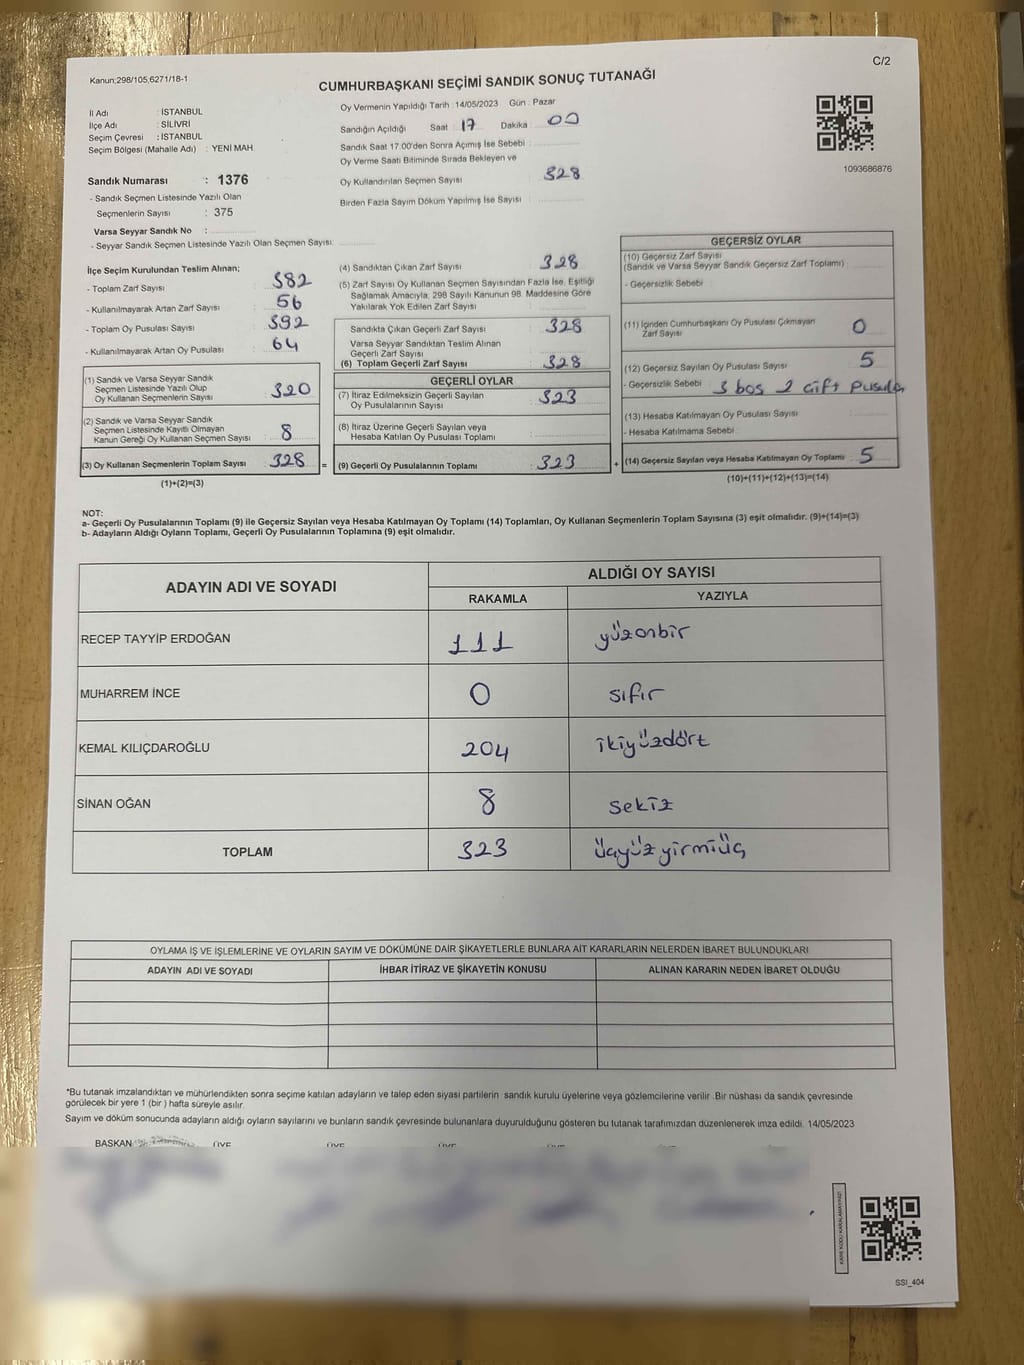 Kanun;298/105,6271/18-1
C/2
CUMHURBAŞKANI SEÇİMİ SANDIK SONUÇ TUTANAĞI
İl Adı : İSTANBUL
İlçe Adı : SİLİVRİ
Seçim Çevresi : İSTANBUL
Seçim Bölgesi (Mahalle Adı) : YENİ MAH.
Sandık Numarası : 1376
- Sandık Seçmen Listesinde Yazılı Olan
Seçmenlerin Sayısı : 375
Varsa Seyyar Sandık No :
- Seyyar Sandık Seçmen Listesinde Yazılı Olan Seçmen Sayısı:
Oy Vermenin Yapıldığı Tarih : 14/05/2023 Gün : Pazar
Sandığın Açıldığı Saat : 17 Dakika : 00
Sandık Saat 17:00'den Sonra Açımış İse Sebebi :
Oy Verme Saati Bitiminde Sırada Bekleyen ve
Oy Kullandırılan Seçmen Sayısı : 328
Birden Fazla Sayım Döküm Yapılmış İse Sayısı :
1093686876
İlçe Seçim Kurulundan Teslim Alınan;
- Toplam Zarf Sayısı : 382
- Kullanılmayarak Artan Zarf Sayısı : 56
- Toplam Oy Pusulası Sayısı : 392
- Kullanılmayarak Artan Oy Pusulası : 64
(1) Sandık ve Varsa Seyyar Sandık
Seçmen Listesinde Yazılı Olup
Oy Kullanan Seçmenlerin Sayısı : 320
(2) Sandık ve Varsa Seyyar Sandık
Seçmen Listesinde Kayıtlı Olmayan
Kanun Gereği Oy Kullanan Seçmen Sayısı : 8
(3) Oy Kullanan Seçmenlerin Toplam Sayısı : 328 =
(1)+(2)=(3)
(4) Sandıktan Çıkan Zarf Sayısı : 328
(5) Zarf Sayısı Oy Kullanan Seçmen Sayısından Fazla İse, Eşitliği
Sağlamak Amacıyla, 298 Sayılı Kanunun 98. Maddesine Göre
Yakılarak Yok Edilen Zarf Sayısı :
Sandıkta Çıkan Geçerli Zarf Sayısı : 328
Varsa Seyyar Sandıktan Teslim Alınan
Geçerli Zarf Sayısı :
(6) Toplam Geçerli Zarf Sayısı : 328
GEÇERLİ OYLAR
(7) İtiraz Edilmeksizin Geçerli Sayılan
Oy Pusulalarının Sayısı : 323
(8) İtiraz Üzerine Geçerli Sayılan veya
Hesaba Katılan Oy Pusulası Toplamı :
(9) Geçerli Oy Pusulalarının Toplamı : 323 +
GEÇERSİZ OYLAR
(10) Geçersiz Zarf Sayısı
(Sandık ve Varsa Seyyar Sandık Geçersiz Zarf Toplamı) :
- Geçersizlik Sebebi :
(11) İçinden Cumhurbaşkanı Oy Pusulası Çıkmayan
Zarf Sayısı : 0
(12) Geçersiz Sayılan Oy Pusulası Sayısı : 5
- Geçersizlik Sebebi : 3 boş 2 çift pusula
(13) Hesaba Katılmayan Oy Pusulası Sayısı :
- Hesaba Katılmama Sebebi :
(14) Geçersiz Sayılan veya Hesaba Katılmayan Oy Toplamı : 5
(10)+(11)+(12)+(13)=(14)
NOT:
a- Geçerli Oy Pusulalarının Toplamı (9) ile Geçersiz Sayılan veya Hesaba Katılmayan Oy Toplamı (14) Toplamları, Oy Kullanan Seçmenlerin Toplam Sayısına (3) eşit olmalıdır. (9)+(14)=(3)
b- Adayların Aldığı Oyların Toplamı, Geçerli Oy Pusulalarının Toplamına (9) eşit olmalıdır.
ADAYIN ADI VE SOYADI
ALDIĞI OY SAYISI
RAKAMLA YAZIYLA
RECEP TAYYİP ERDOĞAN 111 yüzonbir
MUHARREM İNCE 0 sıfır
KEMAL KILIÇDAROĞLU 204 ikiyüzdört
SİNAN OĞAN 8 sekiz
TOPLAM 323 üçyüzyirmiüç
OYLAMA İŞ VE İŞLEMLERİNE VE OYLARIN SAYIM VE DÖKÜMÜNE DAİR ŞİKAYETLERLE BUNLARA AİT KARARLARIN NELERDEN İBARET BULUNDUKLARI
ADAYIN ADI VE SOYADI İHBAR İTİRAZ VE ŞİKAYETİN KONUSU ALINAN KARARIN NEDEN İBARET OLDUĞU
*Bu tutanak imzalandıktan ve mühürlendikten sonra seçime katılan adayların ve talep eden siyasi partilerin sandık kurulu üyelerine veya gözlemcilerine verilir .Bir nüshası da sandık çevresinde
görülecek bir yere 1 (bir ) hafta süreyle asılır.
Sayım ve döküm sonucunda adayların aldığı oyların sayılarını ve bunların sandık çevresinde bulunanlara duyurulduğunu gösteren bu tutanak tarafımızdan düzenlenerek imza edildi. 14/05/2023
BAŞKAN ÜYE ÜYE ÜYE ÜYE ÜYE
KARE KODU KARALAMAYINIZ!
SSI_404